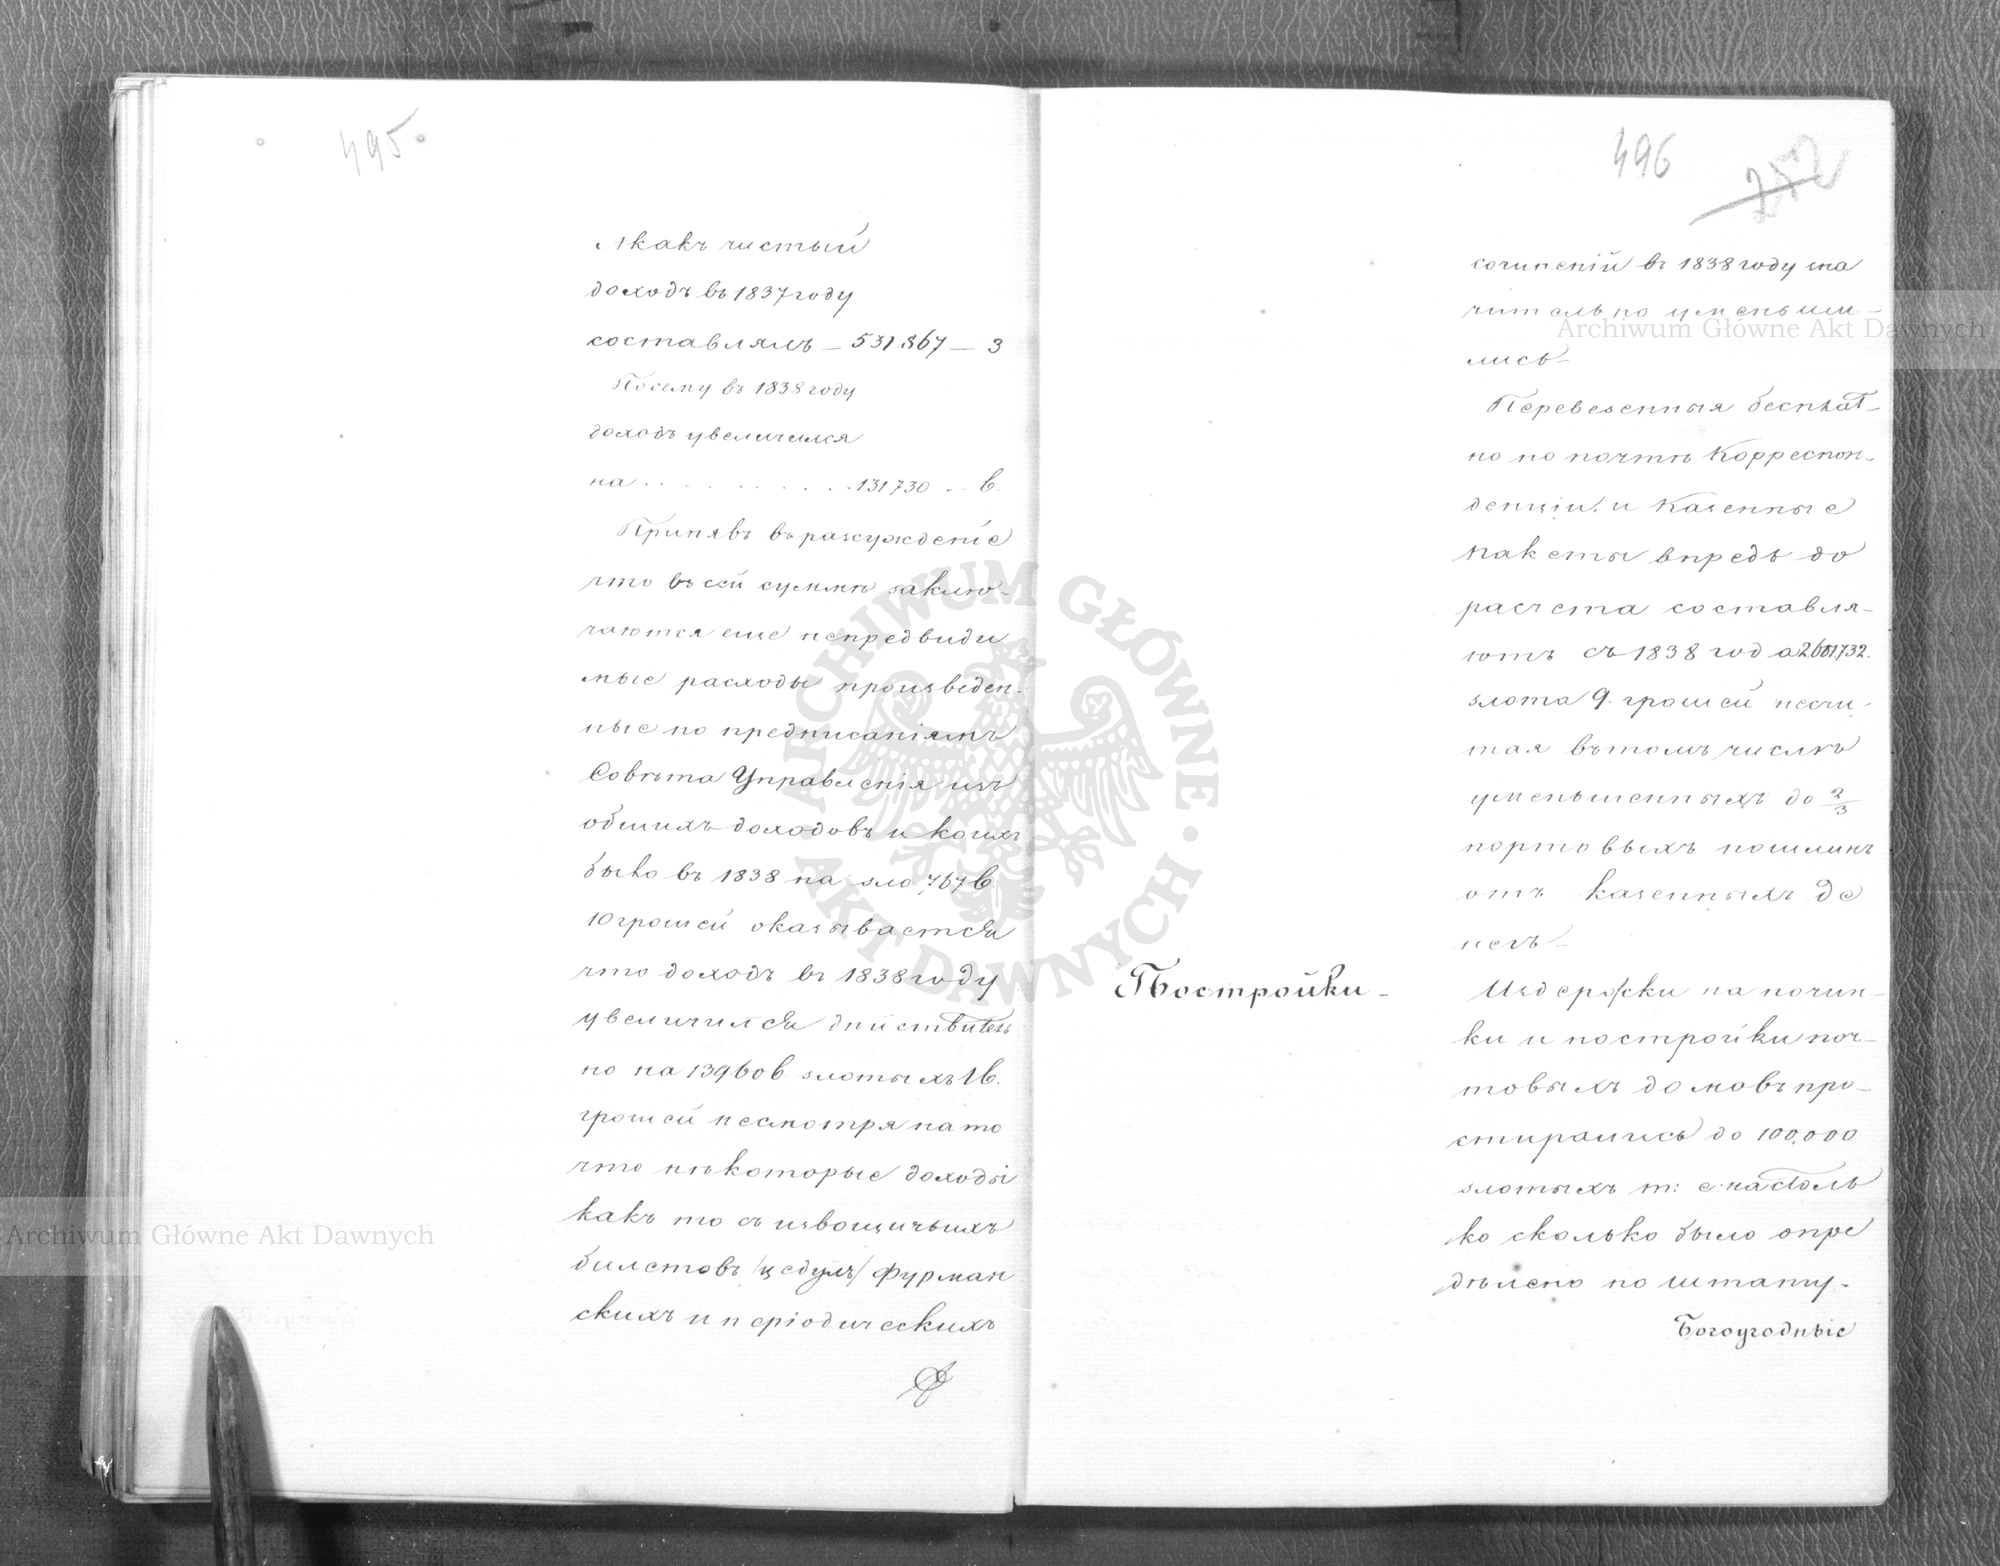 495
А какъ чистый
доходъ въ 1837 году
составлялъ — 531.867 — 3
Посему въ 1838 году
доходъ увеличился
на . . . . . . . . . . 131730 — 6.
Принявъ въ разсужденіе
что въ сей суммѣ заклю-
чаются еще непредвиди
мые расходы произведен-
ные по предписаніямъ
Совѣта Управленія изъ
общихъ доходовъ и коихъ
было въ 1838 на зло. 7876
10 грошей оказывается
что доходъ въ 1838 году
увеличился дѣйствитель
но на 139606 злотыхъ 16.
грошей несмотря на то
что нѣкоторые доходы
какъ то съ извощичьихъ
билетовъ /цедулъ/ фурман
скихъ и періодическихъ
496
сочиненій въ 1838 году зна
чительно уменьши-
лись.-
Перевезенныя безплат-
но по почтѣ Корреспон-
денціи и Казенные
пакеты впредь до
расчета составля-
ютъ съ 1838 года
злота 9. грошей несчи-
тая въ томъ числѣ
уменьшенныхъ до 2/3
портовыхъ пошлинъ
отъ казенныхъ де
негъ -
Постройки -
Издержки на почин-
ки и постройки поч-
товыхъ домовъ про-
стирались до 100.000
злотыхъ т: е: настоль
ко сколько было опре
дѣлено по штату.-
Богоугодные
Archiwum Główne Akt Dawnych
Archiwum Główne Akt Dawnych
ARCHIWUM GŁÓWNE · AKT DAWNYCH ·